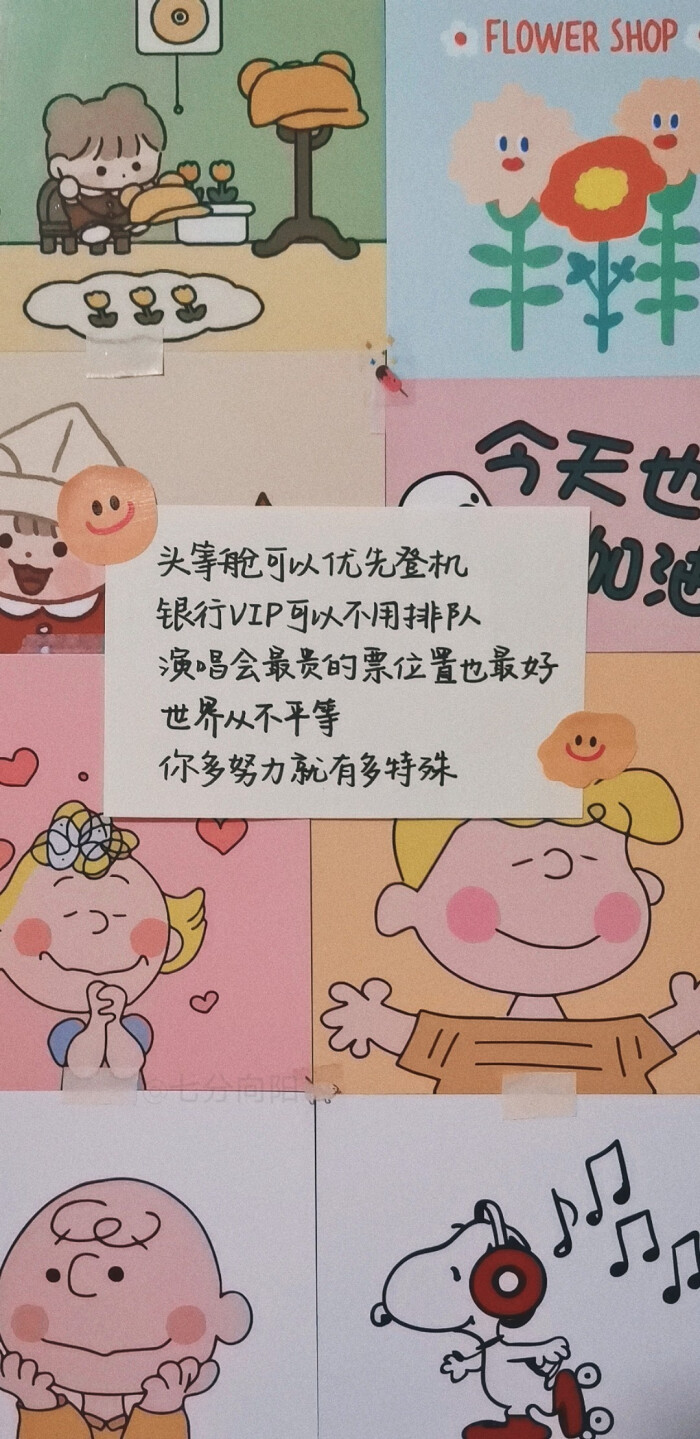 FLOWER SHOP
今天也
加油
头等舱可以优先登机
银行VIP可以不用排队
演唱会最贵的票位置也最好
世界从不平等
你多努力就有多特殊
@七分向阳